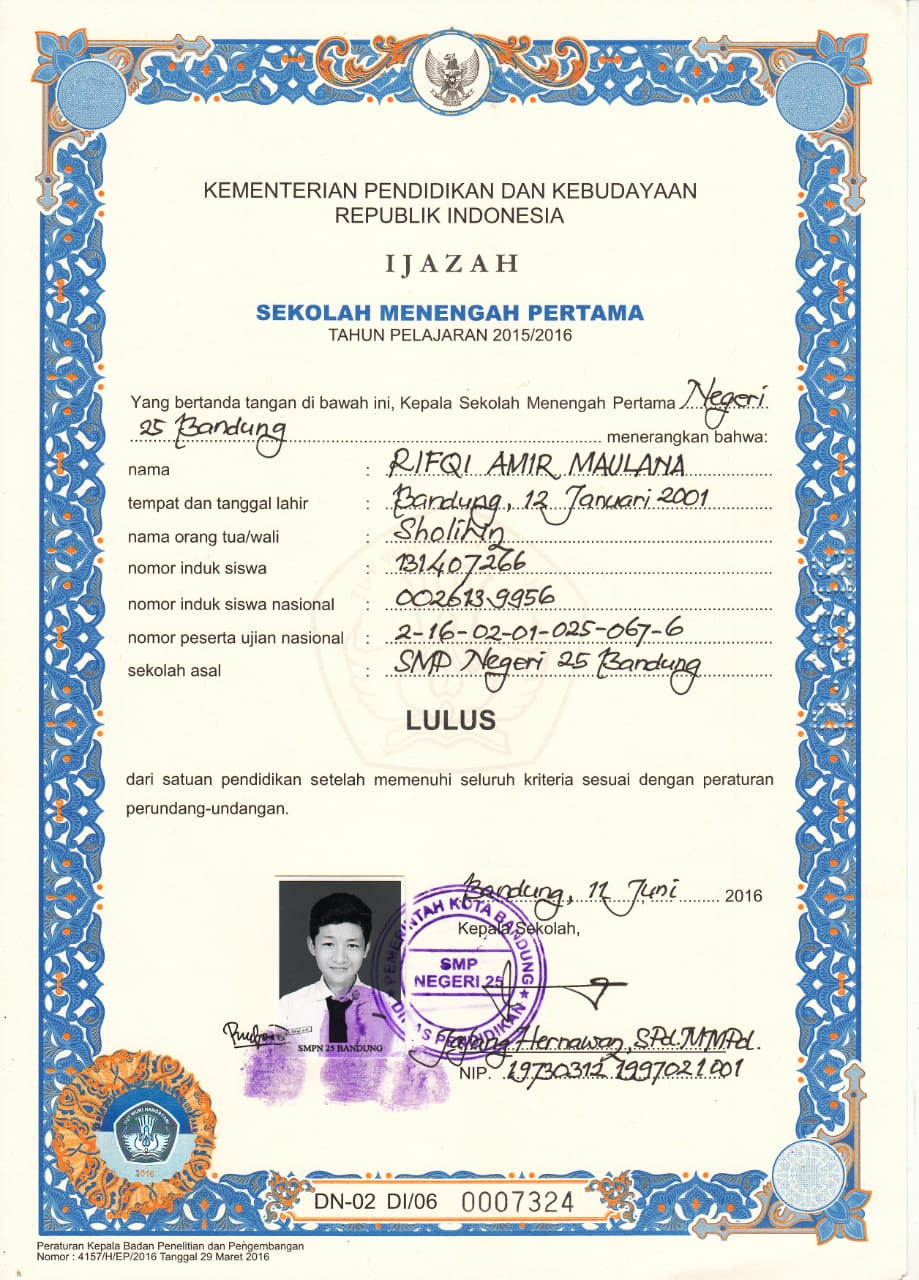 KEMENTERIAN PENDIDIKAN DAN KEBUDAYAAN
REPUBLIK INDONESIA
IJAZAH
SEKOLAH MENENGAH PERTAMA
TAHUN PELAJARAN 2015/2016
Yang bertanda tangan di bawah ini, Kepala Sekolah Menengah Pertama Negeri
25 Bandung menerangkan bahwa:
nama : RIFQI AMIR MAULANA
tempat dan tanggal lahir : Bandung, 12 Januari 2001
nama orang tua/wali : Sholihin
nomor induk siswa : 131407266
nomor induk siswa nasional : 0026139956
nomor peserta ujian nasional : 2-16-02-01-025-067-6
sekolah asal : SMP Negeri 25 Bandung
LULUS
dari satuan pendidikan setelah memenuhi seluruh kriteria sesuai dengan peraturan
perundang-undangan.
Bandung, 11 Juni 2016
Kepala Sekolah,
PEMERINTAH KOTA BANDUNG
SMP
NEGERI 25
DINAS PENDIDIKAN
SMPN 25 BANDUNG
Hernawan, SPd. MMPd.
NIP. 19730312 1997021001
TUT WURI HANDAYANI
2016
DN-02 DI/06 0007324
Peraturan Kepala Badan Penelitian dan Pengembangan
Nomor : 4157/H/EP/2016 Tanggal 29 Maret 2016